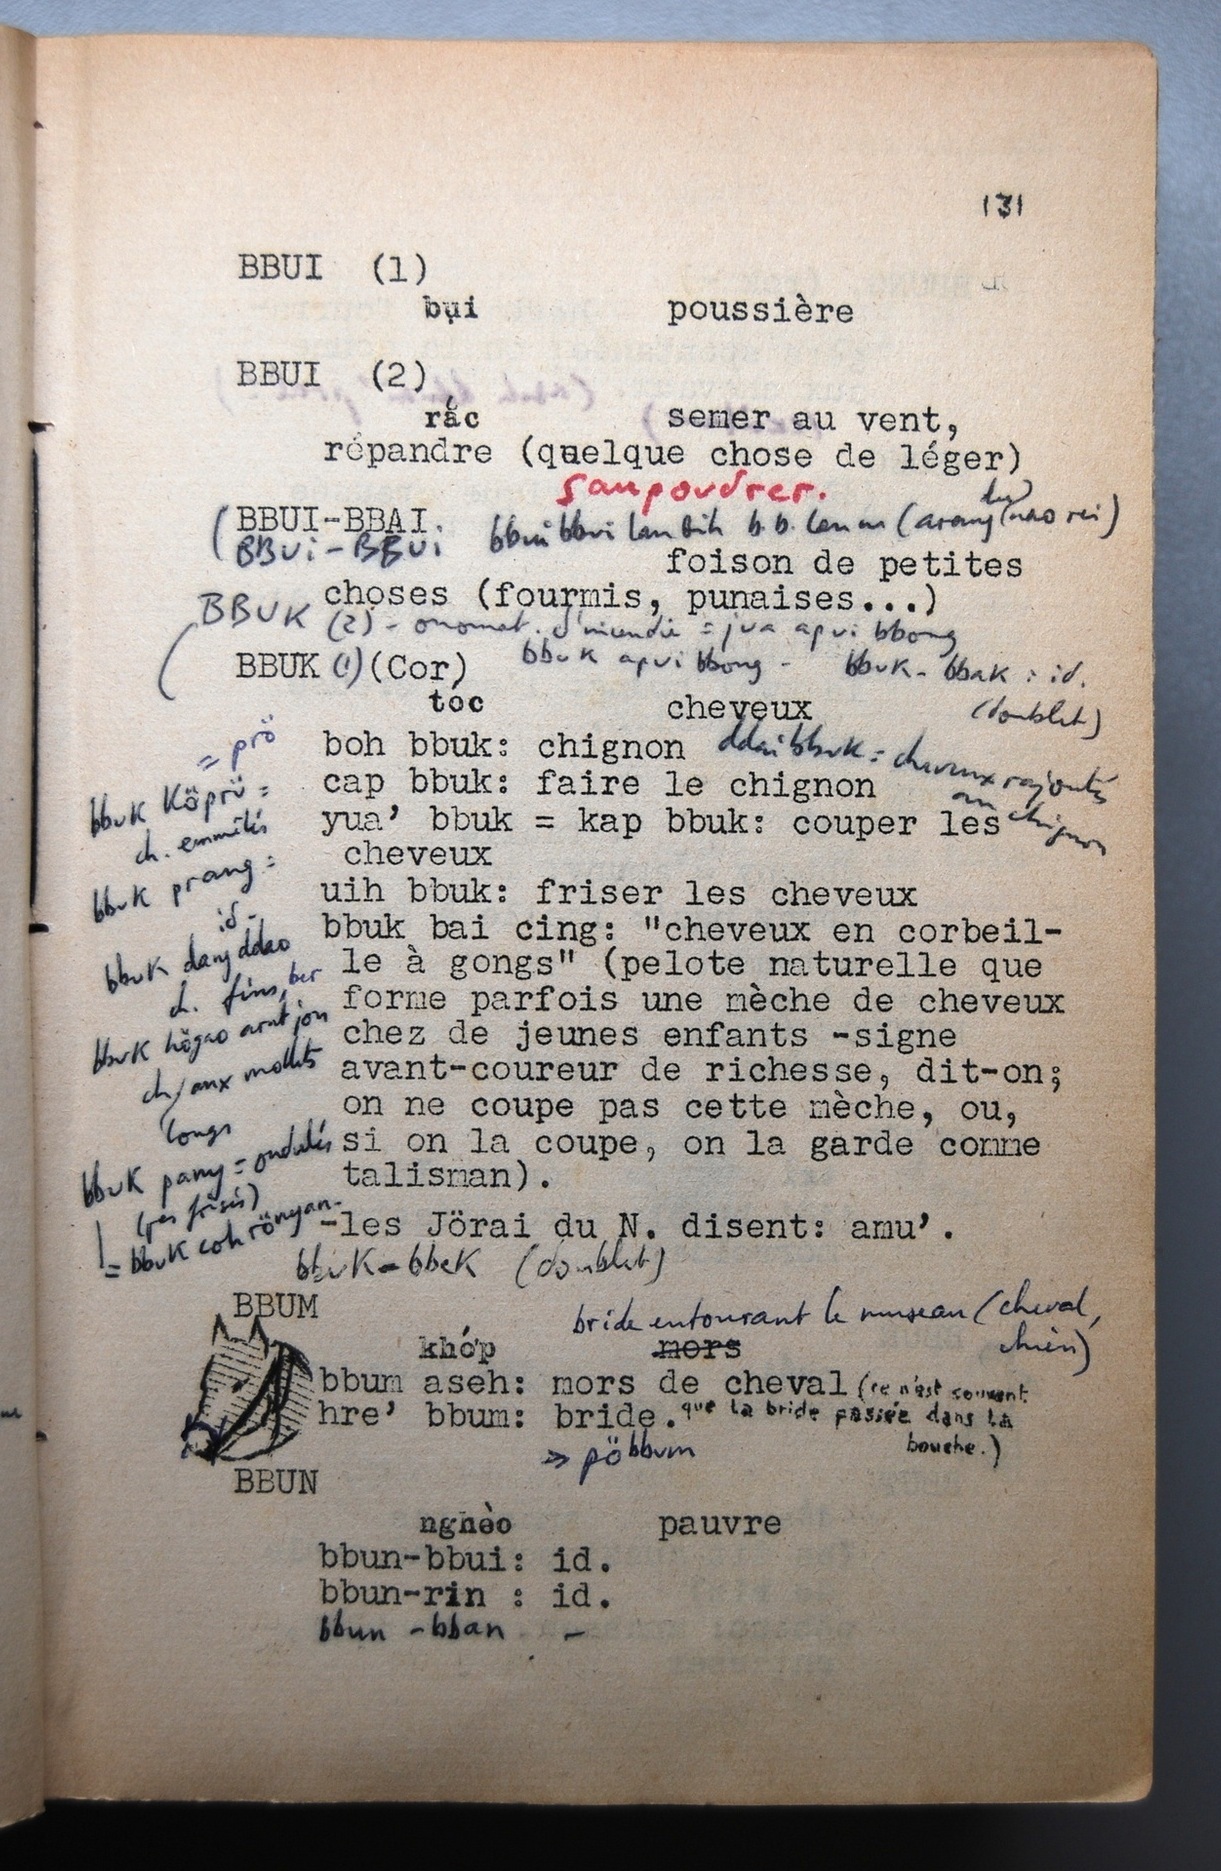 131
BBUI (1)
bụi poussière
BBUI (2)
rắc semer au vent,
répandre (quelque chose de léger)
saupoudrer.
(BBUI-BBAI.
BBUi-BBUi bbui bbui b.b.
foison de petites
choses (fourmis, punaises...)
BBUK (2) - onomat. d'incendie = jua apui bbong
bbuk apui bbong - bbuk-bbak : id.
(doublet)
BBUK (1) (Cor)
tóc cheveux
boh bbuk: chignon ddai bbuk = cheveux rajoutés
au chignon
cap bbuk: faire le chignon
yua’ bbuk = kap bbuk: couper les
cheveux
uih bbuk: friser les cheveux
bbuk bai cing: "cheveux en corbeil-
le à gongs" (pelote naturelle que
forme parfois une mèche de cheveux
chez de jeunes enfants -signe
avant-coureur de richesse, dit-on;
on ne coupe pas cette mèche, ou,
si on la coupe, on la garde comme
talisman).
-les Jörai du N. disent: amu’.
bbuk-bbek (doublet)
= prö
bbuk köprü =
ch. emmêlés
bbuk prang =
id-
bbuk dang ddao
ch. fins,
bbuk högao
ch/ aux mollets
longs
bbuk pang = ondulés
(pas frisés)
= bbuk coh rönyan-
BBUM
bride entourant le museau (cheval,
chien)
khớp mors
bbum aseh: mors de cheval (ce n'est souvent
hre’ bbum: bride. que la bride passée dans la
bouche.)
=> pöbbum
BBUN
nghèo pauvre
bbun-bbui: id.
bbun-rin : id.
bbun -bban -